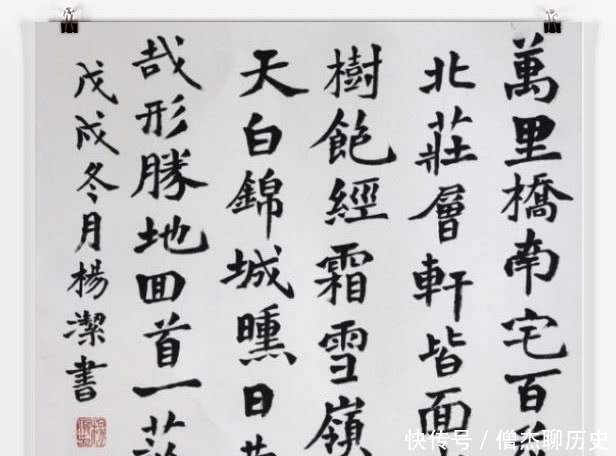 萬里橋南宅百
北莊層軒皆面
樹飽經霜雪嶺
天白錦城曛日
哉形勝地囬首一
戊戌冬月楊潔書
快传号 / 僧杰聊历史